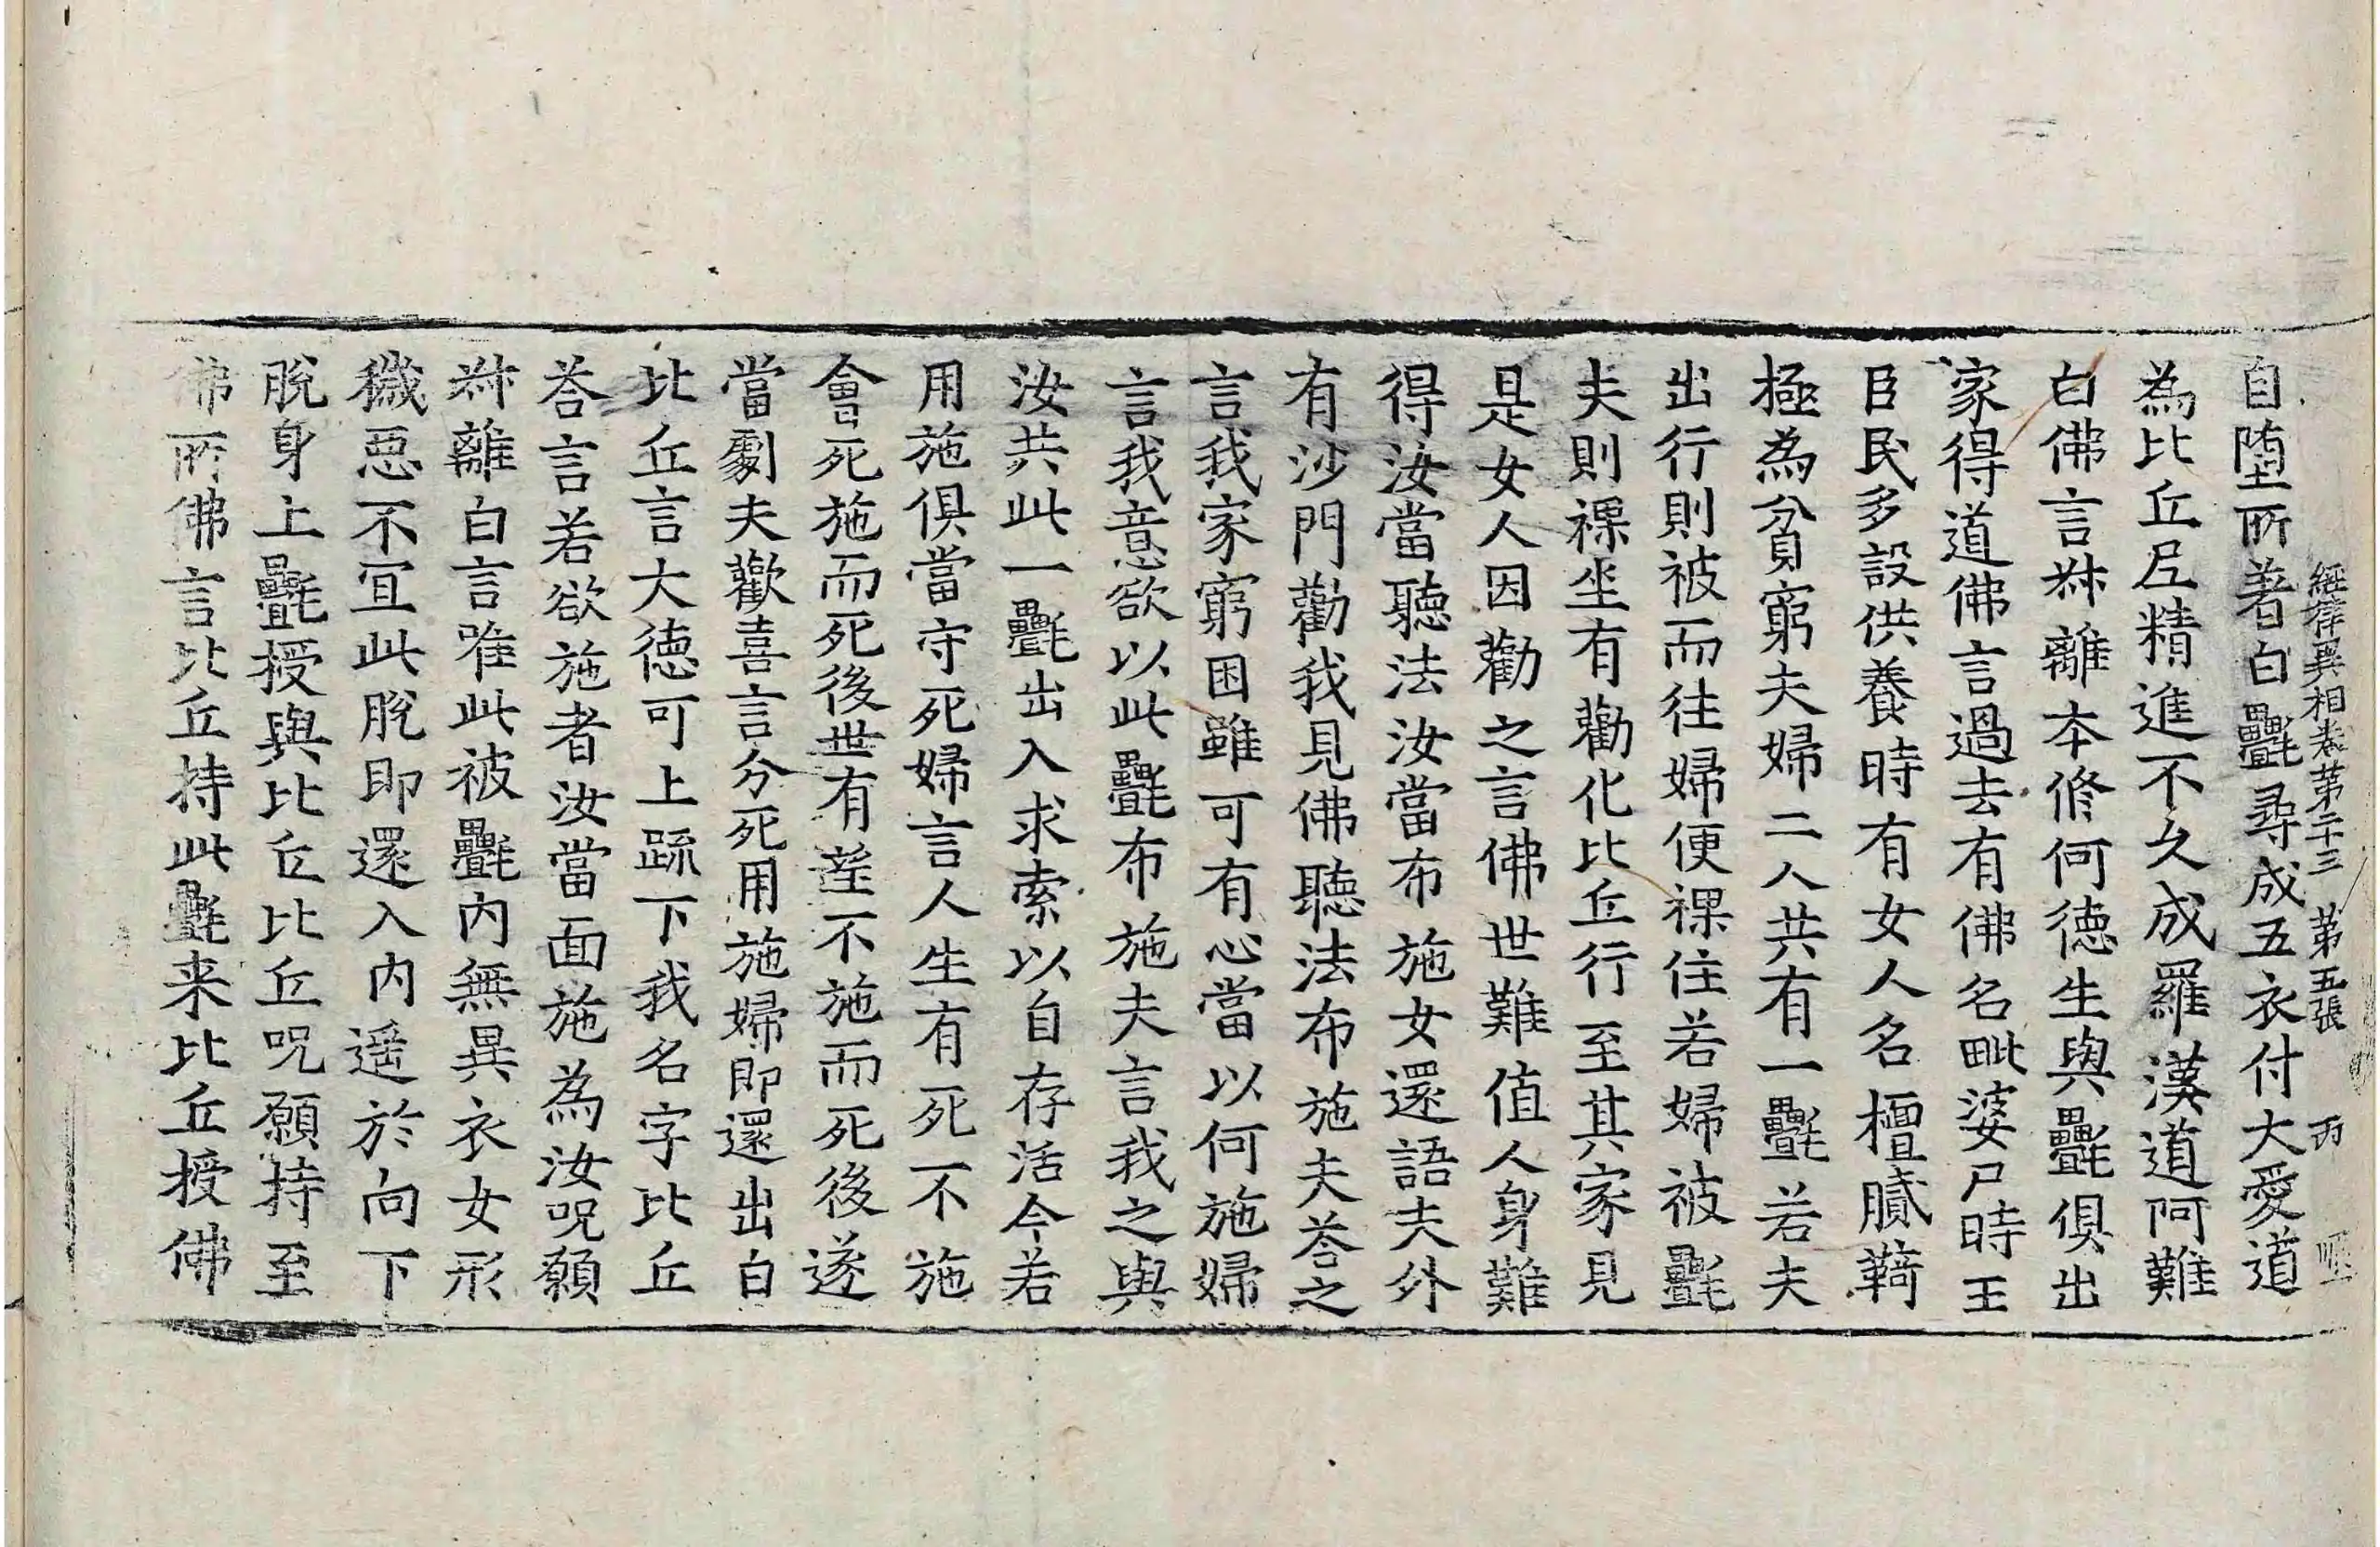 經律異相卷第二十三 第五張 丙
自墮所著白㲲尋成五衣付大愛道
為比丘尼精進不久成羅漢道阿難
白佛言叔離本修何德生與㲲俱出
家得道佛言過去有佛名毗婆尸時王
臣民多設供養時有女人名檀膩䩭
極為貧窮夫婦二人共有一㲲若夫
出行則被而往婦便裸住若婦被㲲
夫則裸坐有勸化比丘行至其家見
是女人因勸之言佛世難值人身難
得汝當聽法汝當布施女還語夫外
有沙門勸我見佛聽法布施夫荅之
言我家窮困雖可有心當以何施婦
言我意欲以此㲲布施夫言我之與
汝共此一㲲出入求索以自存活今若
用施俱當守死婦言人生有死不施
會死施而死後世有莚不施而死後遂
當劇夫歡喜言分死用施婦即還出白
比丘言大德可上䟽下我名字比丘
荅言若欲施者汝當面施為汝呪願
叔離白言唯此被㲲內無異衣女形
穢惡不宜此脫即還入內遥於向下
脫身上㲲授與比丘比丘呪願持至
佛所佛言比丘持此㲲来比丘授佛